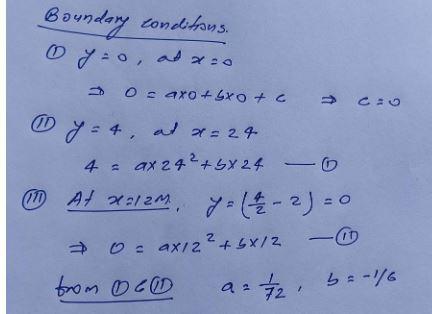 Boundary conditions.
① y = 0, at x = 0
⇒ 0 = ax0 + bx0 + c ⇒ c = 0
② y = 4, at x = 24
4 = ax24² + bx24 — ①
③ At x = 12M, y = (4/2 - 2) = 0
⇒ 0 = ax12² + bx12 — ②
from ① & ② a = 1/72, b = -1/6